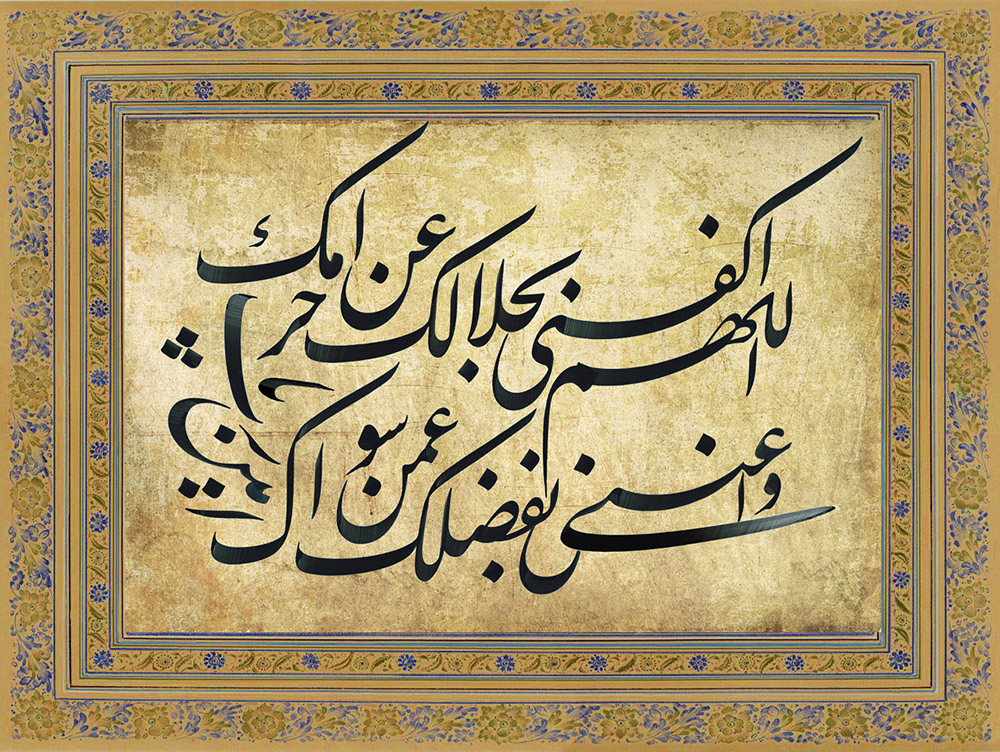 اللهم اکفنی بحلالک عن حرامک
و اغننی بفضلک عمن سواک